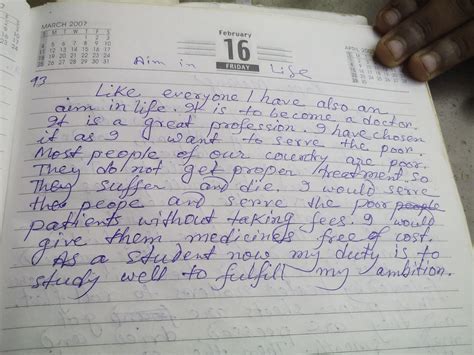 MARCH 2007
February
16
FRIDAY
Aim in Life
13
Like everyone I have also an
aim in life. It is to become a doctor.
It is a great profession. I have chosen
it as I want to serve the poor.
Most people of our country are poor.
They do not get proper treatment so
They suffer and die. I would serve
the peope and serve the poor people
patients without taking fees. I would
give them medicines free of cost.
As a student now my duty is to
study well to fulfill my ambition.